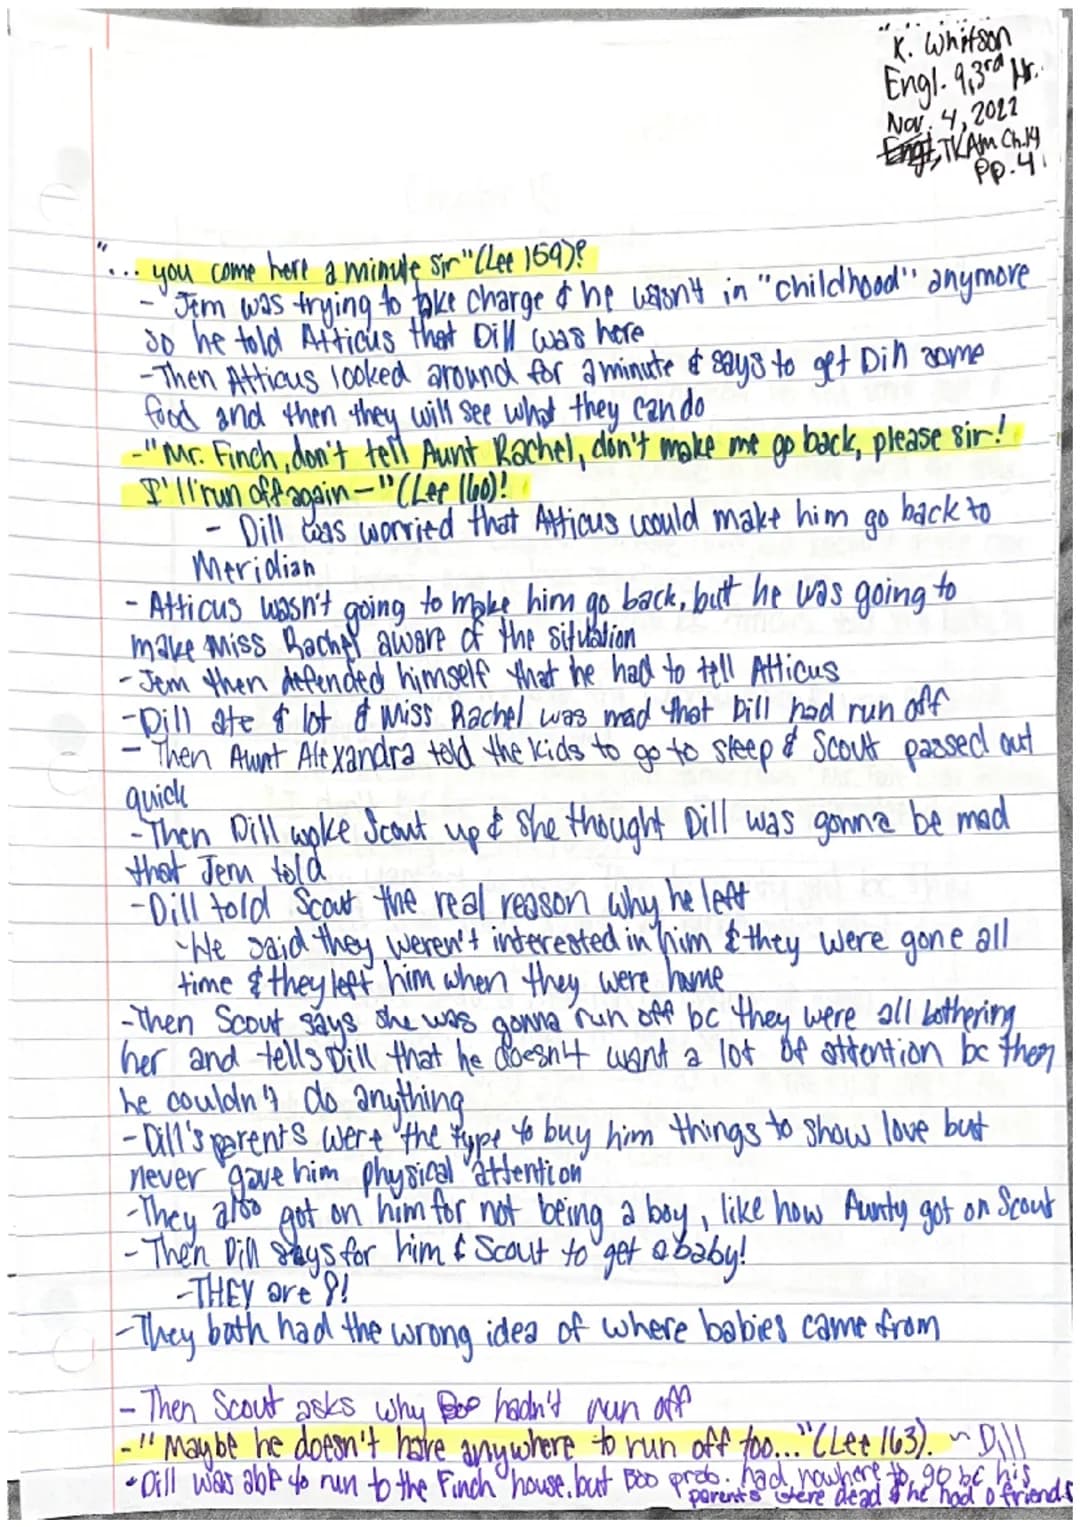 "K. Whitson
Engl. 9, 3rd Hr.
Nov. 4, 2022
TKAM Ch.14
Pp. 4
"... you come here a minute sir" (Lee 159)?
- Jem was trying to take charge & he wasn't in "childhood" anymore
so he told Atticus that Dill was here
- Then Atticus looked around for a minute & says to get Dill some
food and then they will see what they can do
- "Mr. Finch, don't tell Aunt Rachel, don't make me go back, please sir!
I'll run off again -" (Lee 160)!
- Dill was worried that Atticus would make him go back to
Meridian
- Atticus wasn't going to make him go back, but he was going to
make Miss Rachel aware of the situation
- Jem then defended himself that he had to tell Atticus
- Dill ate a lot & Miss Rachel was mad that Dill had run off
- Then Aunt Alexandra told the kids to go to sleep & Scout passed out
quick
- Then Dill woke Scout up & she thought Dill was gonna be mad
that Jem told
- Dill told Scout the real reason why he left
- He said they weren't interested in him & they were gone all
time & they left him when they were home
- Then Scout says she was gonna run off bc they were all bothering
her and tells Dill that he doesn't want a lot of attention bc then
he couldn't do anything
- Dill's parents were the type to buy him things to show love but
never gave him physical attention
- They also got on him for not being a boy, like how Aunty got on Scout
- Then Dill says for him & Scout to get a baby!
- THEY are 8!
- They both had the wrong idea of where babies came from
- Then Scout asks why Boo hadn't run off
- "Maybe he doesn't have anywhere to run off too..." (Lee 163). ~ Dill
• Dill was able to run to the Finch house, but Boo prob. had nowhere to go bc his
parents were dead & he had 0 friends